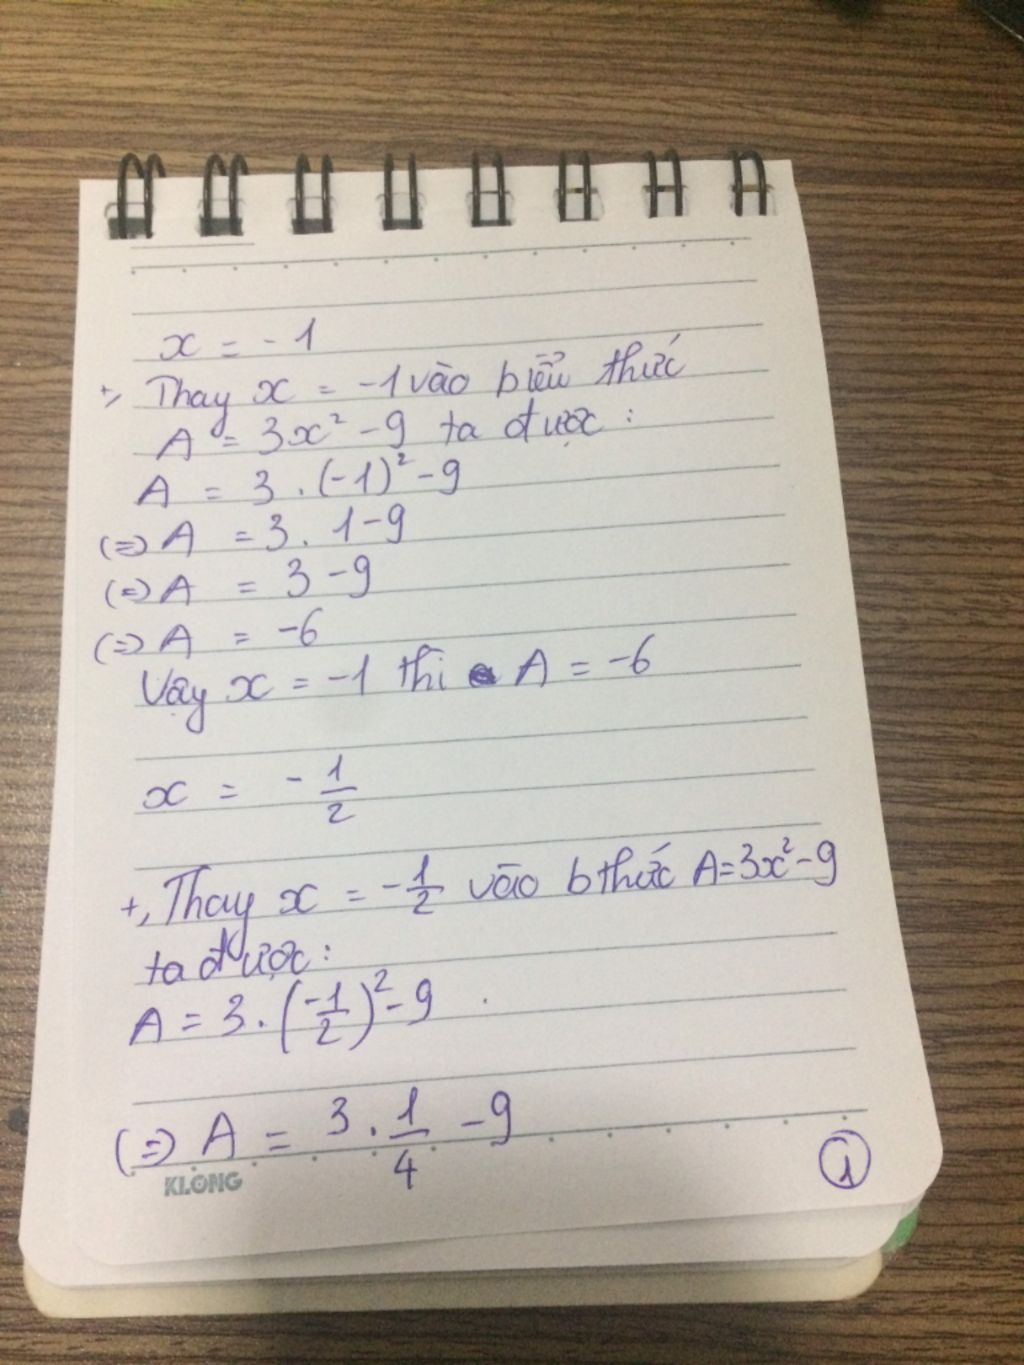 x = -1
+, Thay x = -1 vào biểu thức
A = 3x² - 9 ta được :
A = 3 . (-1)² - 9
(=) A = 3 . 1 - 9
(=) A = 3 - 9
(=) A = -6
Vậy x = -1 thì A = -6
x = - 1/2
+, Thay x = - 1/2 vào bthức A = 3x² - 9
ta được :
A = 3 . (-1/2)² - 9
(=) A = 3 . 1/4 - 9
KLONG
1